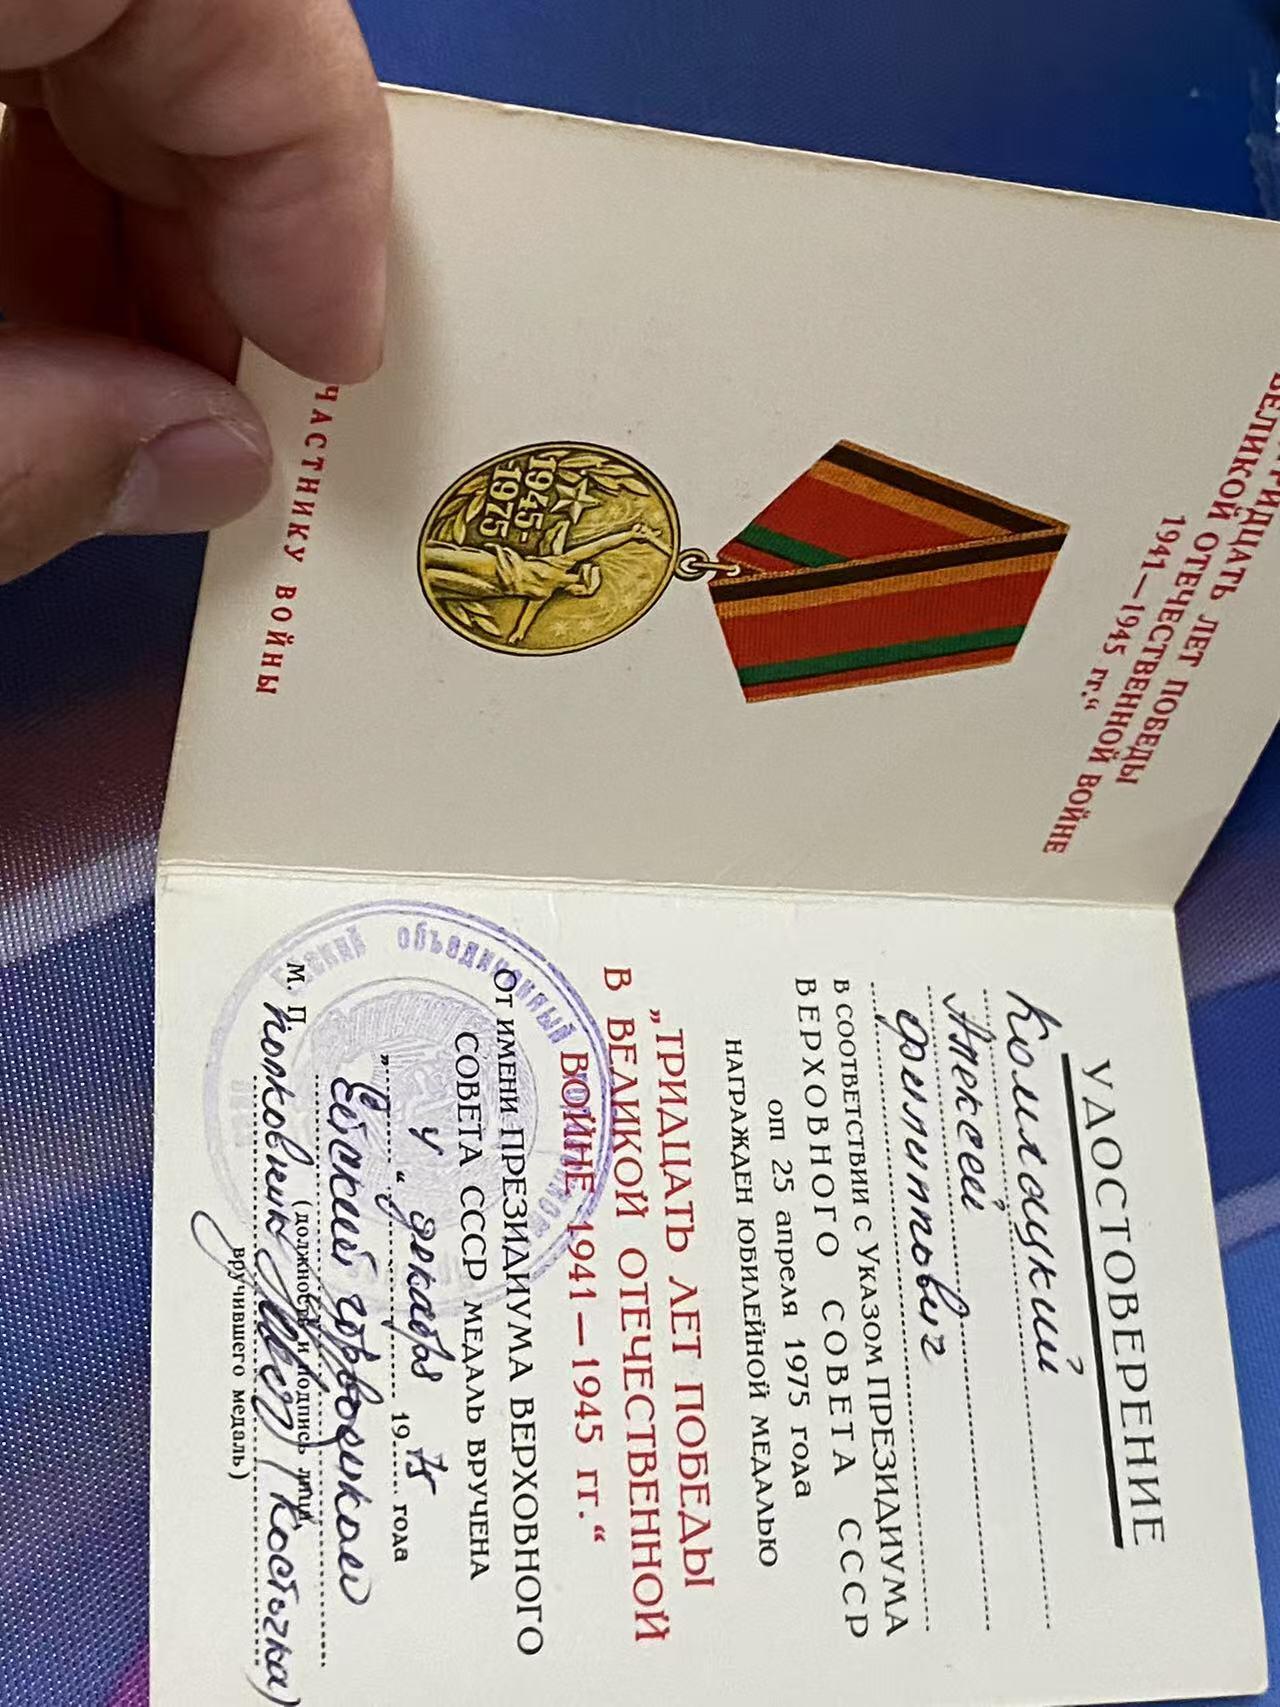 ТРИДЦАТЬ ЛЕТ ПОБЕДЫ
ВЕЛИКОЙ ОТЕЧЕСТВЕННОЙ ВОЙНЕ
1941—1945 гг.“
1945-
1975
ЧАСТНИКУ ВОЙНЫ
УДОСТОВЕРЕНИЕ
Алексей
Филиппович
В СООТВЕТСТВИИ С УКАЗОМ ПРЕЗИДИУМА
ВЕРХОВНОГО СОВЕТА СССР
от 25 апреля 1975 года
НАГРАЖДЕН ЮБИЛЕЙНОЙ МЕДАЛЬЮ
„ТРИДЦАТЬ ЛЕТ ПОБЕДЫ
В ВЕЛИКОЙ ОТЕЧЕСТВЕННОЙ
ВОЙНЕ 1941—1945 гг.“
ОТ ИМЕНИ ПРЕЗИДИУМА ВЕРХОВНОГО
СОВЕТА СССР МЕДАЛЬ ВРУЧЕНА
„4“ декабря 1975 года
Ейский горвоенком
(должность и подпись лица,
М. П. полковник (Костычка)
вручившего медаль)
объединенный